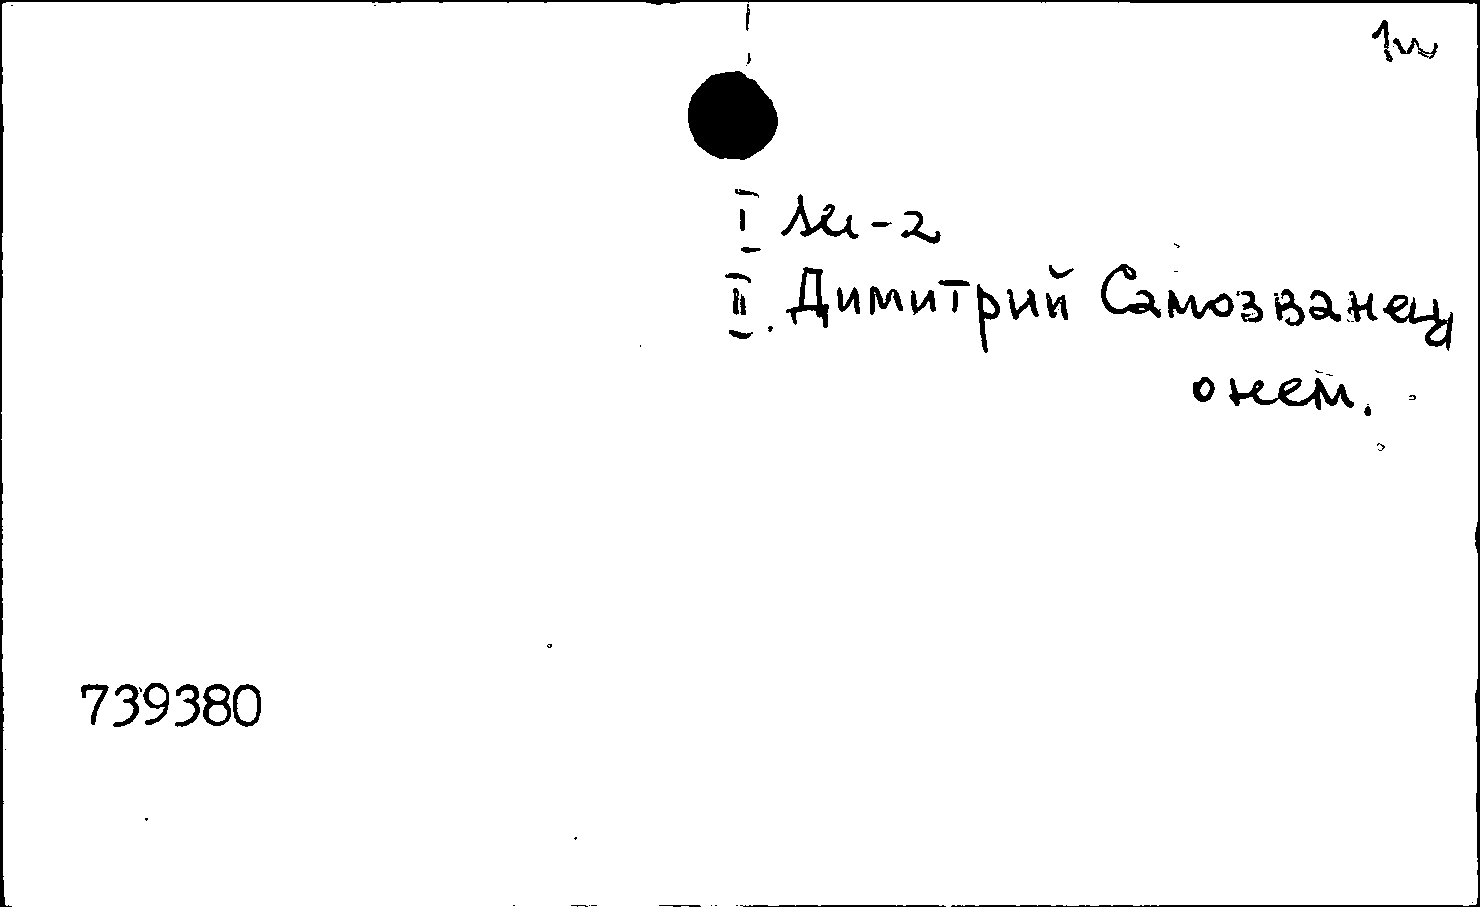 I
II. Димитрий Самозванец
о нем.
739380